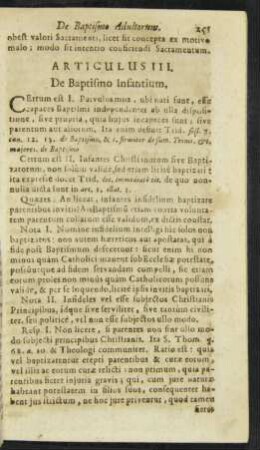 De Baptismo Adultorum. 251
obest valori Sacramenti, licet sit concepta ex motivo
malo; modo sit intentio conficiendi Sacramentum.
ARTICULUS III.
De Baptismo Infantium.
CErtum est I. Parvulos mox ubi nati sunt, esse
capaces Baptismi independenter ab ulla disposi-
tione, sive propria, quia hujus incapaces sunt, sive
parentum aut aliorum. Ita enim definit Trid. sess. 7.
can. 12. 13. de Baptismo, &
majores. de Baptismo
Certum est II. Infantes Christianorum sive Bapti-
zatorum, non solum valide, sed etiam licite baptizari:
ita expresse docet Trid. de quo non-
nulla dicta sunt in art.
Quæres: An liceat, infantes infidelium baptizare
parentibus invitis? An Baptismus etiam invitis volunta-
rem parentum collatus esset validus,
Nota I. Nomine infidelium intelligi hic solos non
baptizatos: non autem hæreticos aut apostatas, qui à
fide post Baptismum defecerunt: licet enim hi non
minus quàm Catholici maneant sub Ecclesiæ potestate,
possintque ad fidem servandam compelli, sic etiam
eorum proles non minus quàm Catholicorum possunt
valide, & per se loquendo, licite ipsis invitis baptizari,
Nota II. Infideles vel esse subjectos Christianis
Principibus, idque sive serviliter, sive tantùm civili-
ter, seu politicè, vel non esse subjectos ullo modo.
Resp. I. Non licere, si parentes non sint ullo mo-
do subjecti principibus Christianis. Ita S. Thom. q.
a. 10 & Theologi communiter. Ratio est: quia
vel baptizarentur erepti parentibus & curæ eorum,
vel illis ac eorum curæ relicti: non primum, quia pa-
rentibus fieret injuria gravis; qui, cum jure naturæ
habeant potestatem in filios suos, consequenter ha-
bent jus strictum, ne hoc jure priventur, quod tamen